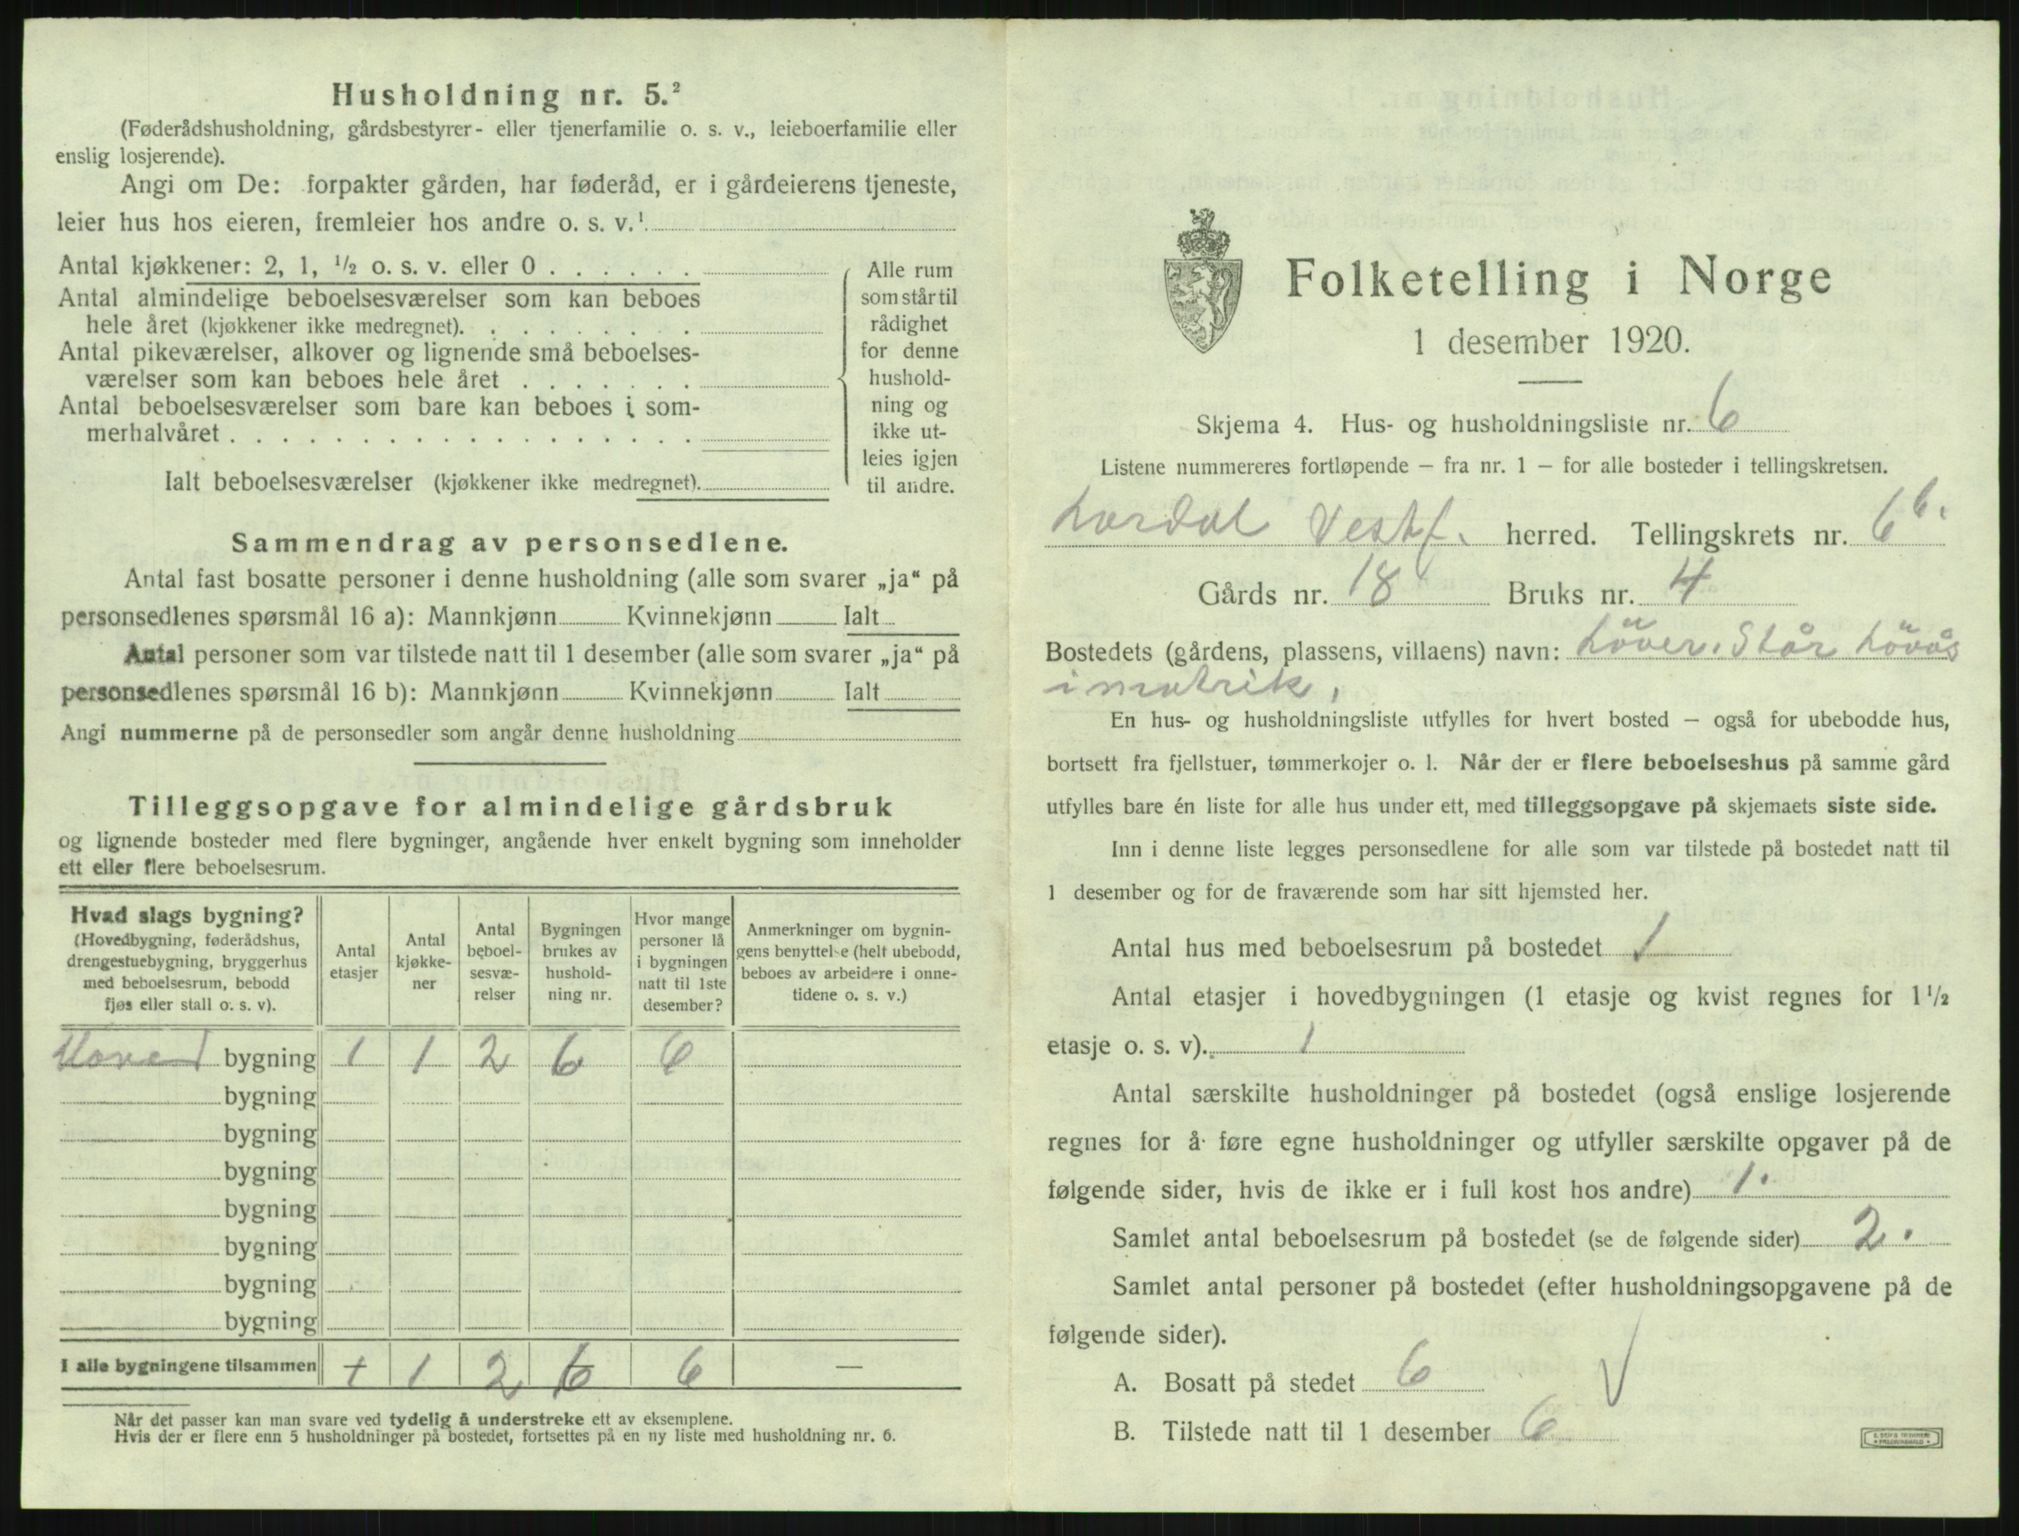 Husholdning nr. 5.²
(Føderådshusholdning, gårdsbestyrer- eller tjenerfamilie o. s. v., leieboerfamilie eller
enslig losjerende).
Angi om De: forpakter gården, har føderåd, er i gårdeierens tjeneste,
leier hus hos eieren, fremleier hos andre o. s. v.¹
Antal kjøkkener: 2, 1, ½ o. s. v. eller 0 . . . . . .
Antal almindelige beboelsesværelser som kan beboes
hele året (kjøkkener ikke medregnet). . . . . . . . .
Antal pikeværelser, alkover og lignende små beboelses-
værelser som kan beboes hele året . . . . . . .
Antal beboelsesværelser som bare kan beboes i som-
merhalvåret . . . . . . . . . . . . . . . . . .
Ialt beboelsesværelser (kjøkkener ikke medregnet).
Alle rum
som står til
rådighet
for denne
hushold-
ning og
ikke ut-
leies igjen
til andre.
Sammendrag av personsedlene.
Antal fast bosatte personer i denne husholdning (alle som svarer „ja“ på
personsedlenes spørsmål 16 a): Mannkjønn Kvinnekjønn Ialt
Antal personer som var tilstede natt til 1 desember (alle som svarer „ja“ på
personsedlenes spørsmål 16 b): Mannkjønn Kvinnekjønn Ialt
Angi nummerne på de personsedler som angår denne husholdning
Tilleggsopgave for almindelige gårdsbruk
og lignende bosteder med flere bygninger, angående hver enkelt bygning som inneholder
ett eller flere beboelsesrum.
Hvad slags bygning?
(Hovedbygning, føderådshus,
drengestuebygning, bryggerhus
med beboelsesrum, bebodd
fjøs eller stall o. s. v).
Antal
etasjer
Antal
kjøkke-
ner
Antal
beboel-
sesvæ-
relser
Bygningen
brukes av
hushold-
ning nr.
Hvor mange
personer lå
i bygningen
natt til 1ste
desember?
Anmerkninger om bygnin-
gens benyttelse (helt ubebodd,
beboes av arbeidere i onne-
tidene o. s. v.)
Hoved bygning 1 1 2 6 6
bygning
bygning
bygning
bygning
bygning
bygning
bygning
I alle bygningene tilsammen + 1 2 6 6 —
Når det passer kan man svare ved tydelig å understreke ett av eksemplene.
Hvis der er flere enn 5 husholdninger på bostedet, fortsettes på en ny liste med husholdning nr. 6.
Folketelling i Norge
1 desember 1920.
Skjema 4. Hus- og husholdningsliste nr. 6
Listene nummereres fortløpende – fra nr. 1 – for alle bosteder i tellingskretsen.
Lardal Vestf. herred. Tellingskrets nr. 6 b.
Gårds nr. 18 Bruks nr. 4
Bostedets (gårdens, plassens, villaens) navn: Löver. Står Lövås
i matrik.
En hus- og husholdningsliste utfylles for hvert bosted – også for ubebodde hus,
bortsett fra fjellstuer, tømmerkojer o. l. Når der er flere beboelseshus på samme gård
utfylles bare én liste for alle hus under ett, med tilleggsopgave på skjemaets siste side.
Inn i denne liste legges personsedlene for alle som var tilstede på bostedet natt til
1 desember og for de fraværende som har sitt hjemsted her.
Antal hus med beboelsesrum på bostedet 1
Antal etasjer i hovedbygningen (1 etasje og kvist regnes for 1½
etasje o. s. v). 1
Antal særskilte husholdninger på bostedet (også enslige losjerende
regnes for å føre egne husholdninger og utfyller særskilte opgaver på de
følgende sider, hvis de ikke er i full kost hos andre) 1.
Samlet antal beboelsesrum på bostedet (se de følgende sider) 2.
Samlet antal personer på bostedet (efter husholdningsopgavene på de
følgende sider).
A. Bosatt på stedet 6
B. Tilstede natt til 1 desember 6